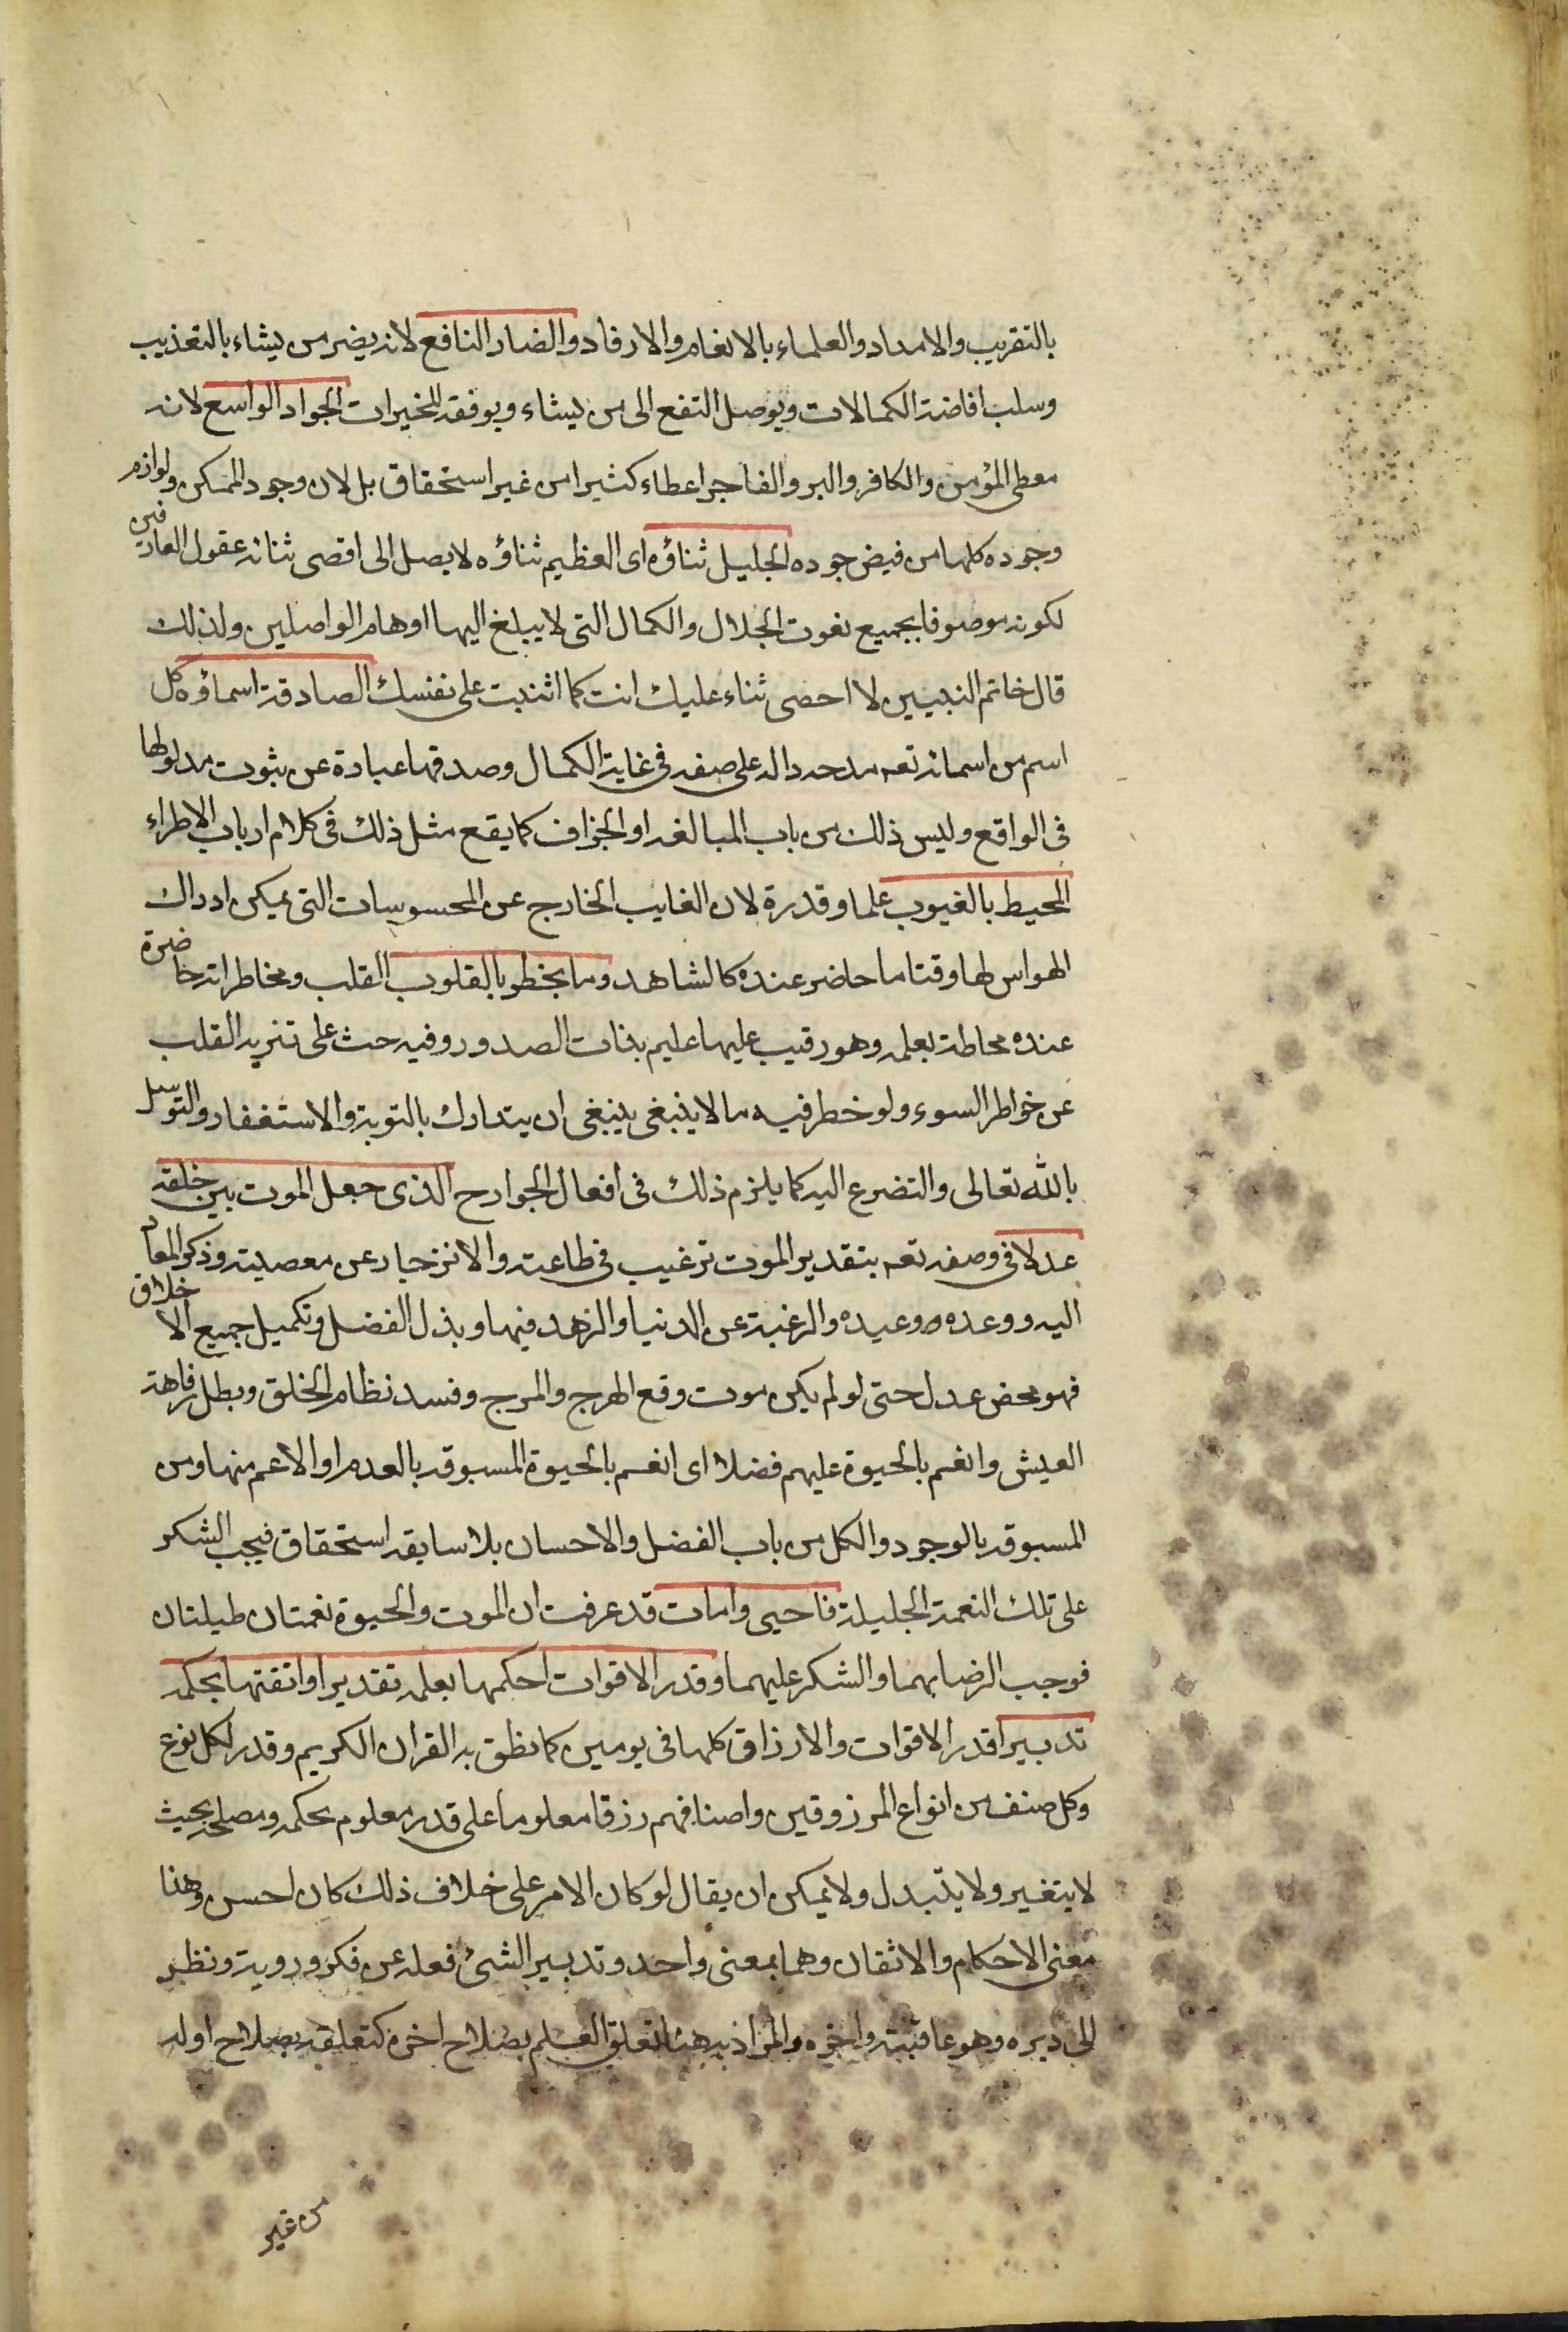 بالتقريب والامداد والعلماء بالانعام والارفاد والضار النافع لانه يضر من يشاء بالتعذيب
وسلب افاضة الكمالات ويوصل النفع الى من يشاء ويوفقه للخيرات الجواد الواسع لانه
معطى المؤمن والكافر والبر والفاجر اعطاء كثيرا من غير استحقاق بل لان وجود الممكن ولوازم
وجوده كلها من فيض جوده الجليل ثناؤه اى العظيم ثناؤه لا يصل الى اقصى ثنائه عقول العارفين
لكونه موصوفا بجميع نعوت الجلال والكمال التى لا يبلغ اليها اوهام الواصلين ولذلك
قال خاتم النبيين لا احصى ثناء عليك انت كما اثنيت على نفسك الصادقة اسماؤه كل
اسم من اسمائه تعه مدحه داله على صفه فى غاية الكمال وصدقها عبارة عن ثبوت مدلولها
فى الواقع وليس ذلك من باب المبالغه او الجزاف كما يقع مثل ذلك فى كلام ارباب الاطراء
المحيط بالغيوب علما وقدرة لان الغايب الخارج عن المحسوسات التى يمكن ادراك
الهواس لها وقتا ما حاضر عنده كالشاهد وما يخطر بالقلوب القلب ومخاطراته حاضرة
عنده محاطة بعلمه وهو رقيب عليها عليم بذات الصدور وفيه حث على تنزيه القلب
عن خواطر السوء ولو خطر فيه ما لا ينبغى ينبغى ان يتدارك بالتوبة والاستغفار والتوسل
بالله تعالى والتضرع اليه كما يلزم ذلك فى افعال الجوارح الذى جعل الموت بين خلقه
عدلا فى وصفه تعه بتقدير الموت ترغيب فى طاعته والانزجار عن معصيته وذكر المعاد
اليه ووعده ووعيده والرغبة عن الدنيا والزهد فيها وبذل الفضل وتكميل جميع الاخلاق
فهو محض عدل حتى لو لم يكن موت وقع الهرج والمرج وفسد نظام الخلق وبطل رفاهة
العيش وانعم بالحيوة عليهم فضلا اى انعم بالحيوة المسبوقه بالعدم او الاعم منها ومن
المسبوقه بالوجود والكل من باب الفضل والاحسان بلا سابقه استحقاق فيجب الشكر
على تلك النعمة الجليلة فاحيى وامات قد عرفت ان الموت والحيوة نعمتان طيلتان
فوجب الرضا بهما والشكر عليهما وقدر الاقوات احكمها بعلمه تقديرا واتقنها بحكمه
تدبيرا قدر الاقوات والارزاق كلها فى يومين كما نطق به القران الكريم وقدر لكل نوع
وكل صنف من انواع المرزوقين واصنافهم رزقا معلوما على قدر معلوم بحكمه ومصلحه بحيث
لا يتغير ولا يتبدل ولا يمكن ان يقال لو كان الامر على خلاف ذلك كان احسن وهذا
معنى الاحكام والاتقان وهما بمعنى واحد وتدبير الشئ فعله عن فكر وروية ونظر
الى دبره وهو عاقبته واخره والمراد به هنا تعلق العلم بصلاح اخره كتعلقه بصلاح اوله
من غير